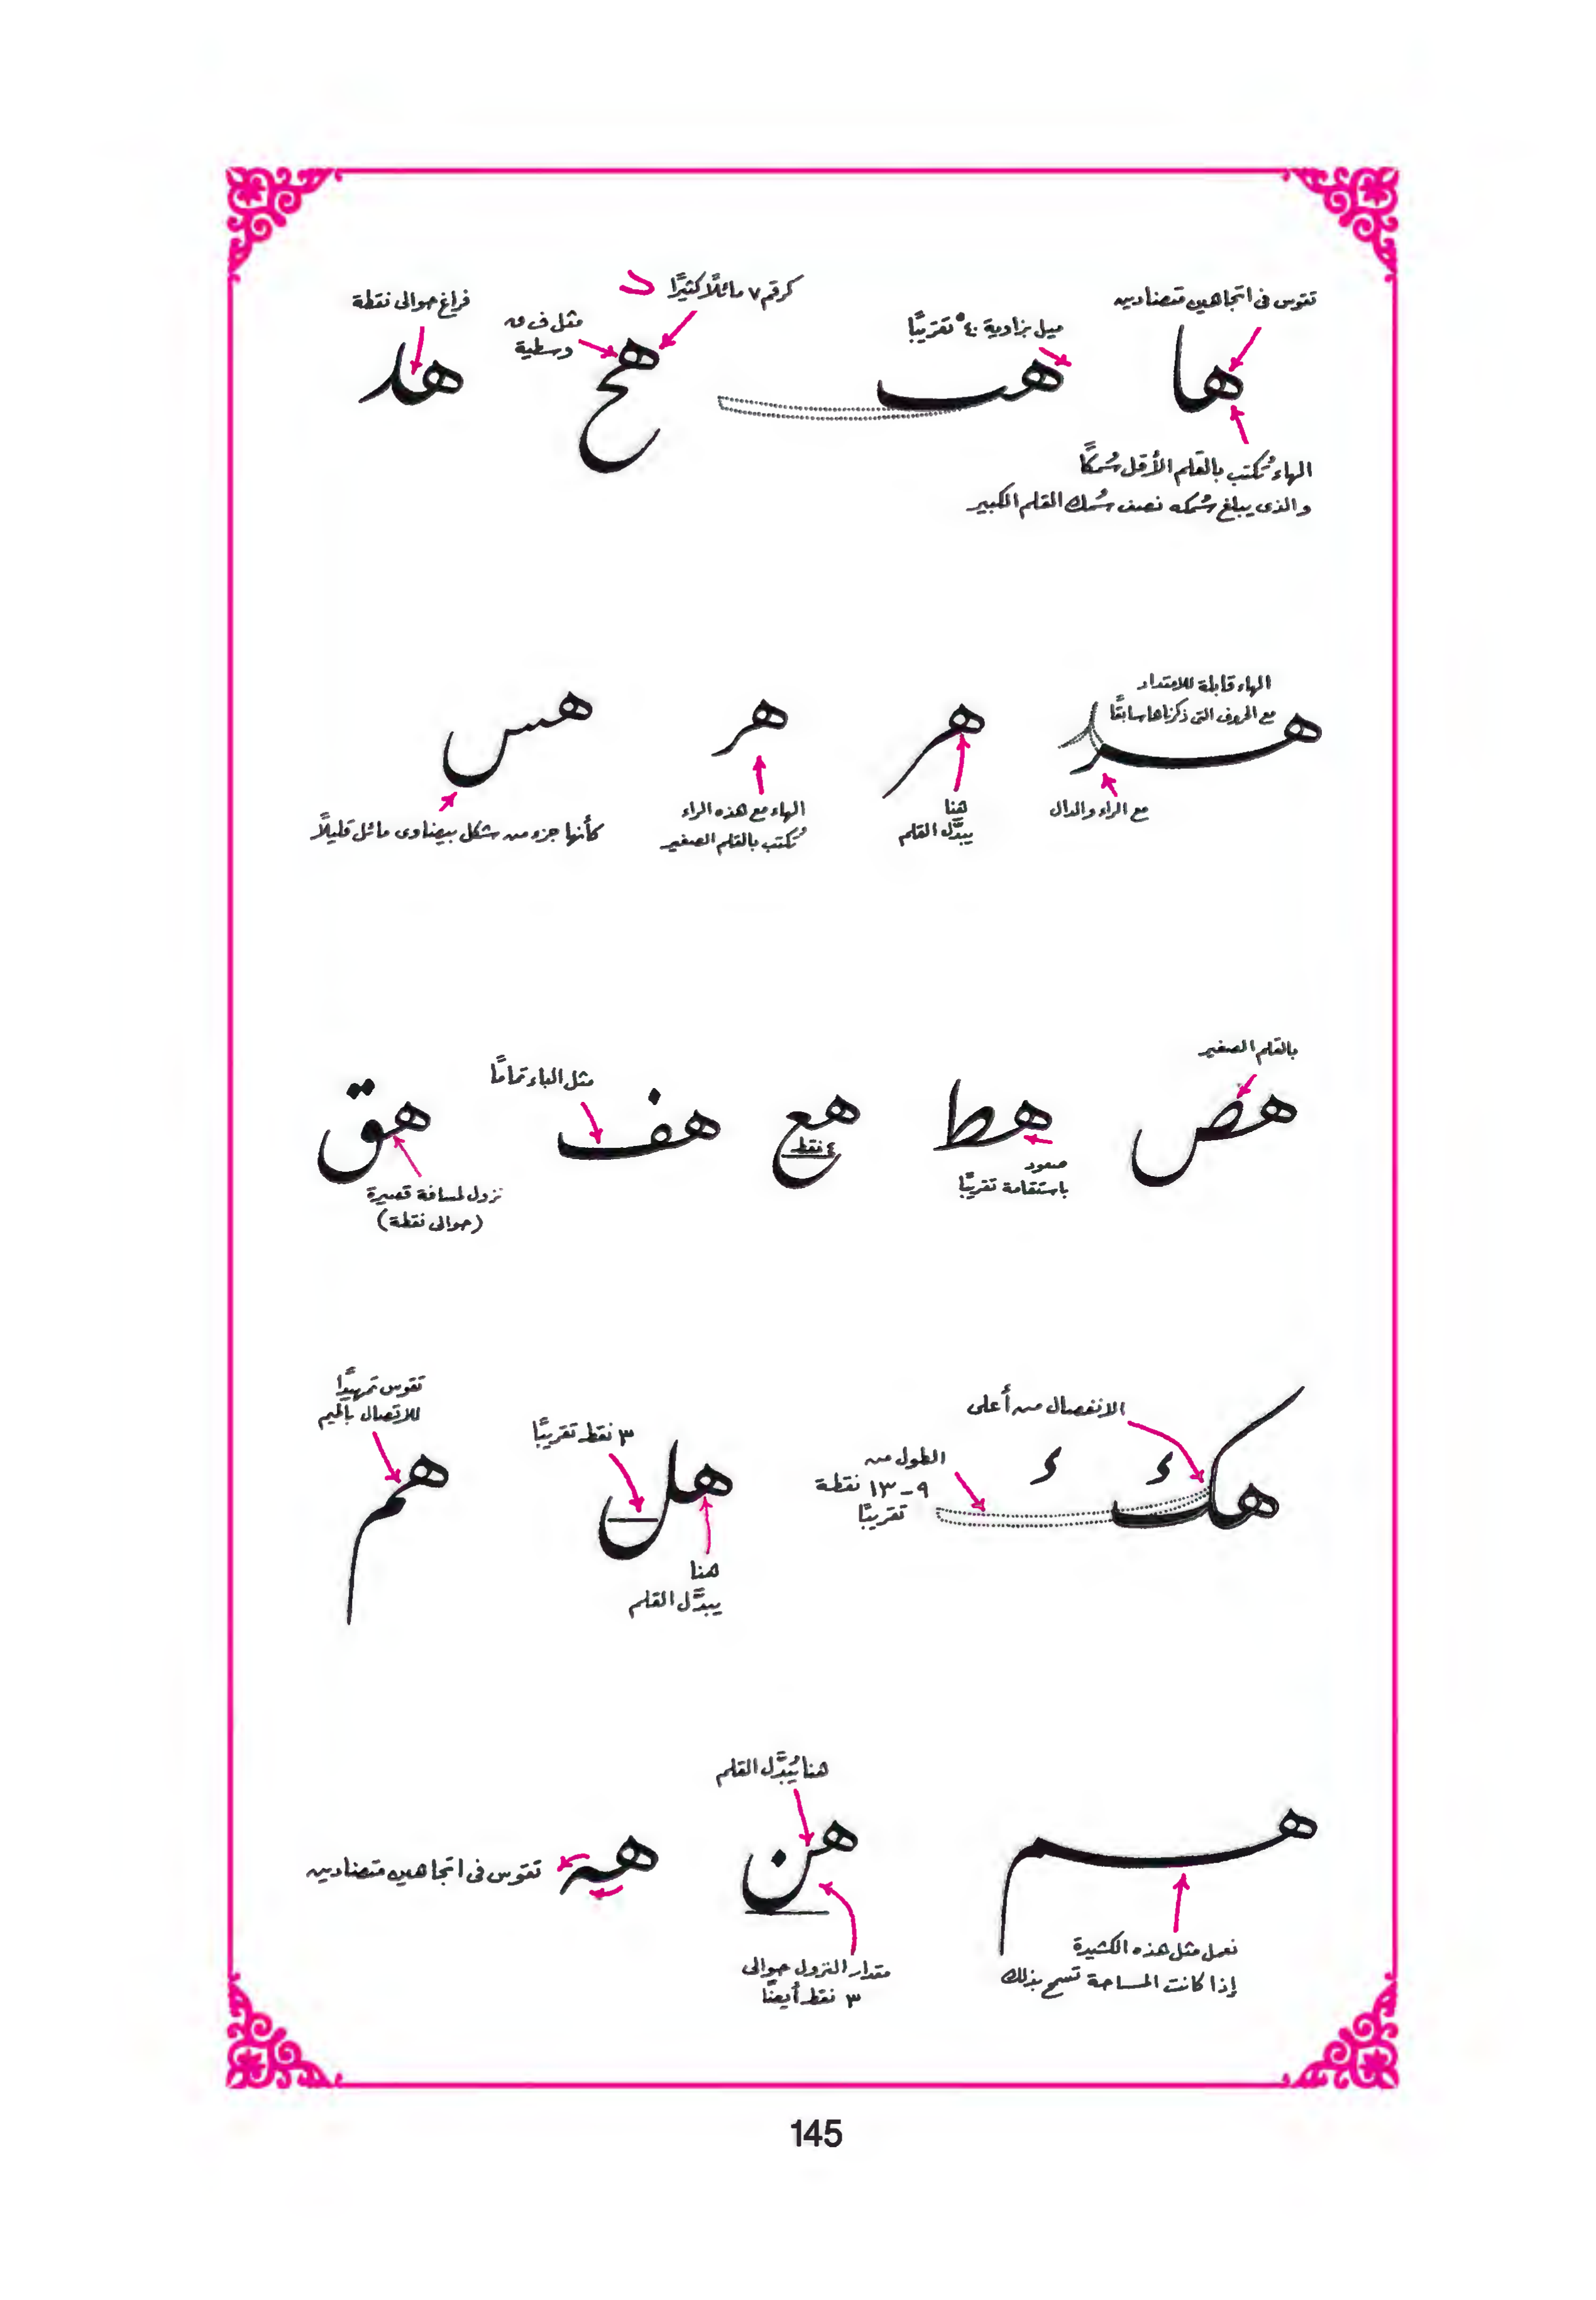 تقوس فى اتجاهين متضادين
ها
الهاء تُكتب بالقلم الأقل سُمكًا
والذى يبلغ سُمكه نصف سُمك القلم الكبير
ميل بزاوية ٤٠° تقريبًا
هب
كرقم ٧ مائلًا كثيرًا
مثل ف ق
وسطية
هح
فراغ حوالى نقطة
هد
الهاء قابلة للامتداد
مع الحروف التى ذكرناها سابقًا
هر
مع الراء والدال
هر
هنا
يبدَّل القلم
هر
الهاء مع هذه الراء
تُكتب بالقلم الصغير
هس
كأنها جزء من شكل بيضاوى مائل قليلًا
بالقلم الصغير
هص
هط
صعود
باستقامة تقريبًا
هع
٤ نقط
مثل الباء تمامًا
هف
هق
نزول لمسافة قصيرة
(حوالى نقطة)
الانفصال من أعلى
هك
الطول من
٩ - ١٣ نقطة
تقريبًا
٣ نقط تقريبًا
هل
هنا
يبدَّل القلم
تقوس تمهيدًا
للاتصال بالميم
هم
هم
نعمل مثل هذه الكشيدة
إذا كانت المساحة تسمح بذلك
هنا يُبدَّل القلم
هن
مقدار النزول حوالى
٣ نقط أيضًا
هه
تقوس فى اتجاهين متضادين
145